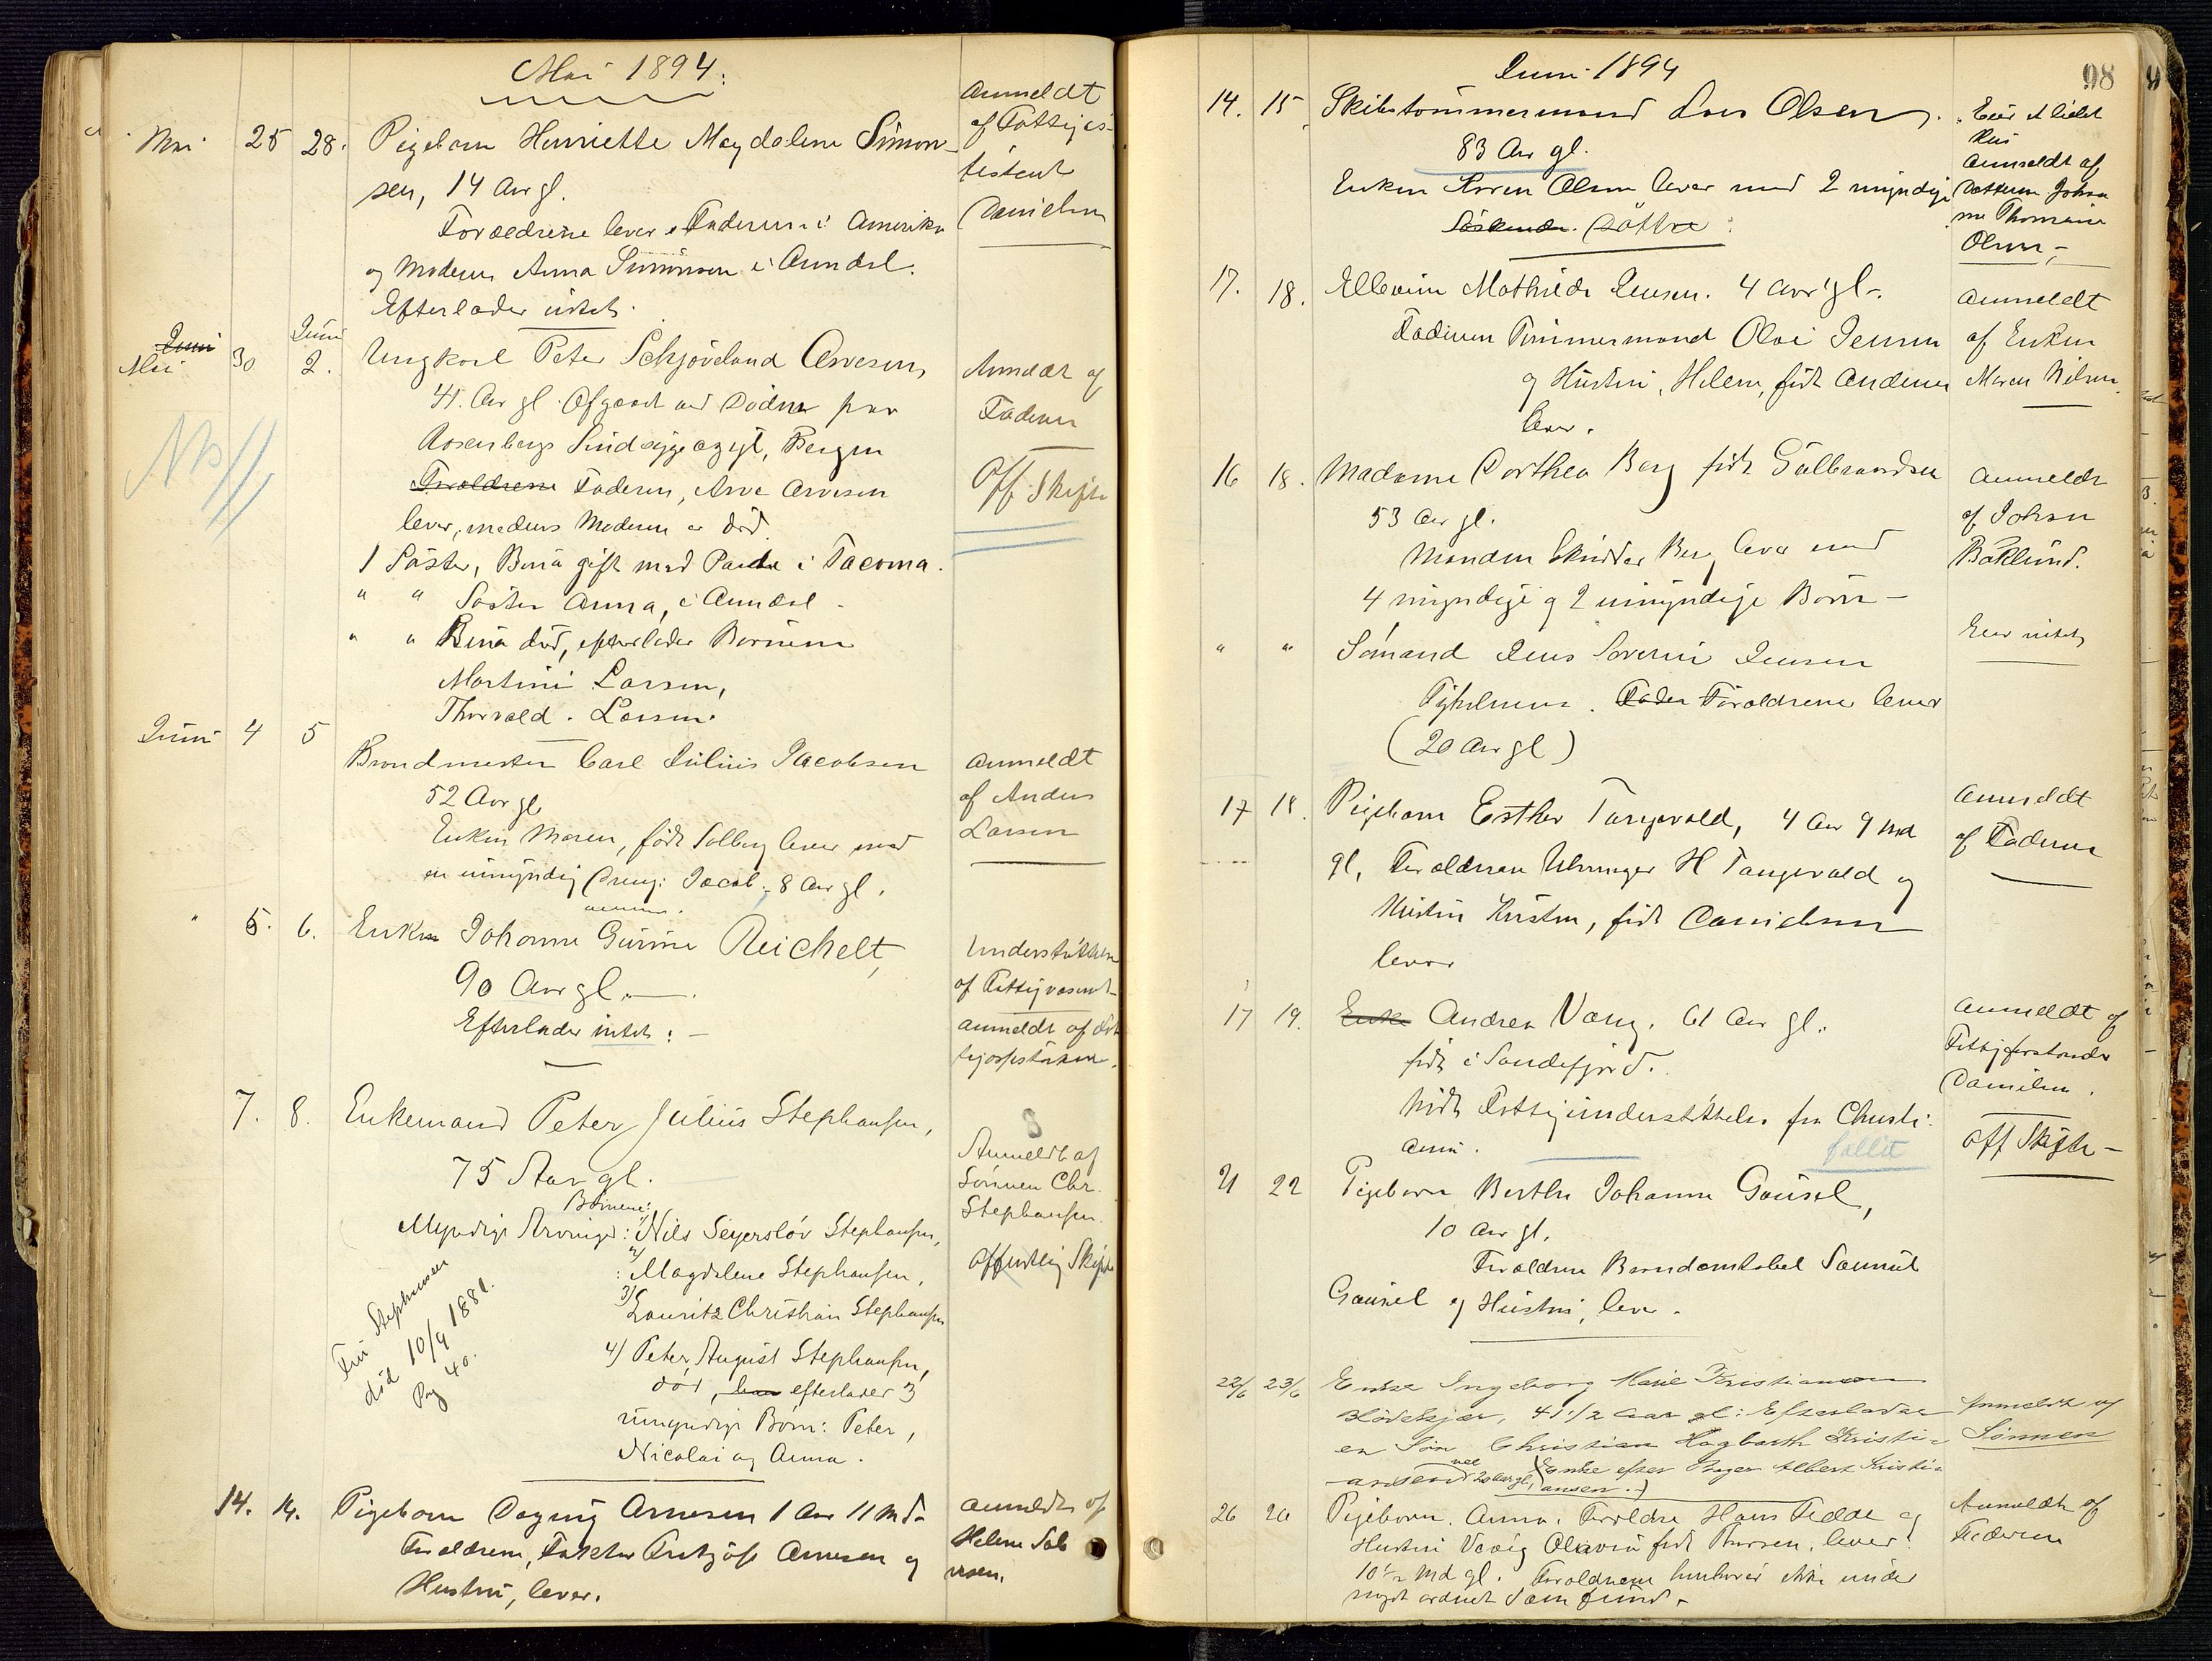 Mai 1894.
Mai 25 28. Pigebarn Henriette Magdalene Simon-
sen, 14 Aar gl.
Forældrene lever, Faderen i Amerika
og Moderen Anna Simonsen i Arendal.
Efterlader intet.
Anmeldt
af Fattigas-
sistent
Danielsen
Juni
Mai 30 Juni 2. Ungkarl Peter Schjöveland Arvesen,
41 Aar gl. Afgaaet ved Döden paa
Rosenbergs Sindssygeasyl, Bergen
Forældrene Faderen, Arve Arvesen
lever, medens Moderen er död.
1 Söster, Bina gift med i Tacoma.
" " Söster Anna, i Arendal -
" " Bina död, efterlader Börnene
Martini Larsen,
Thorvald Larsen.
Anmeldt af
Faderen
Off. Skifte
NB
Juni 4 5
Brandmester Carl Julius Jacobsen
52 Aar gl
Enken Maren, född Solberg lever med
en umyndig Dreng: Jacob, 8 Aar gl.
Anmeldt
af Anders
Larsen
" 5. 6. Enken Johanne Gurine Reichelt,
90 Aar gl.
Efterlader intet: -
Understöttelse
af Fattigvæsenet
Anmeldt af
7. 8. Enkemand Peter Julius Stephansen,
75 Aar gl.
Börnene:
Myndige Arvinger: 1) Nils Seyerslöv Stephansen,
2) Magdalene Stephansen,
3) Lauritz Christian Stephansen
4) Peter August Stephansen,
död, han efterlader 3
umyndige Börn: Peter,
Nicolai og Anna.
Fru Stephansen
död 10/9 1881.
Pag 40.
8
Anmeldt af
Sönnen Chr.
Stephansen.
Offentlig Skifte
14. 14. Pigebarn Dagny Arnesen 1 Aar 11 Md
Forældrene, Faktor Fritzjöf Arnesen og
Hustru, lever.
Anmeldt af
Helene Sal
vesen.
Juni 1894
98
14. 15 Skibstömmermand Lars Olsen,
83 Aar gl.
Enken Karen Olsen lever med 2 myndige
Söskende. Döttre:
Eier et lidet
Hus
Anmeldt af
Datteren Johan
ne Thomine
Olsen,-
17. 18. Ellevine Mathilde Jensen. 4 Aar gl.
Faderen Tömmermand Olai Jensen
og Hustru, Helene, född Andersen
lever.
Anmeldt
af Enken
Maren Nilsen.
16 18. Madame Dorthea Berg född Gulbrandsen
53 Aar gl.
Manden Skrædder Berg lever med
4 myndige og 2 umyndige Börn -
Anmeldt
af Johan
Böklund.
" " Sömand Jens Severin Jensen
Tyholmen. Fader Forældrene lever
(20 Aar gl)
Eier intet
17 18. Pigebarn Esther Tangevald, 4 Aar 9 Md
gl, Forældrene Uhrmager H Tangevald og
Hustru Kristine, född Danielsen
lever
Anmeldt
af Faderen
17 19. Enke Andrea Vang, 61 Aar gl.
född i Sandefjord.
Nydt Fattigunderstöttelse fra Christi-
ania.
fallit
Anmeldt af
Fattigforstander
Danielsen.
Off Skifte -
21 22 Pigebarn Berthe Johanne Gausel,
10 Aar gl.
Forældrene Brandkonstabel Samuel
Gausel og Hustru, lever.
22/6 23/6 Enke Ingeborg Marie Kristiansen
Blödekjær, 41 1/2 Aar gl: Efterlader
en Sön Christian Hagbarth Kristi-
ansen 20 Aar gl, (Enke efter Albert Kristi-
ansen.)
Anmeldt af
Sönnen
26 26 Pigebarn Anna. Forældre Hans Fedde og
Hustru Olavia född lever.
10 1/2 Md gl. Forældrene henhörer ikke under
noget ordnet Samfund.
Anmeldt af
Faderen